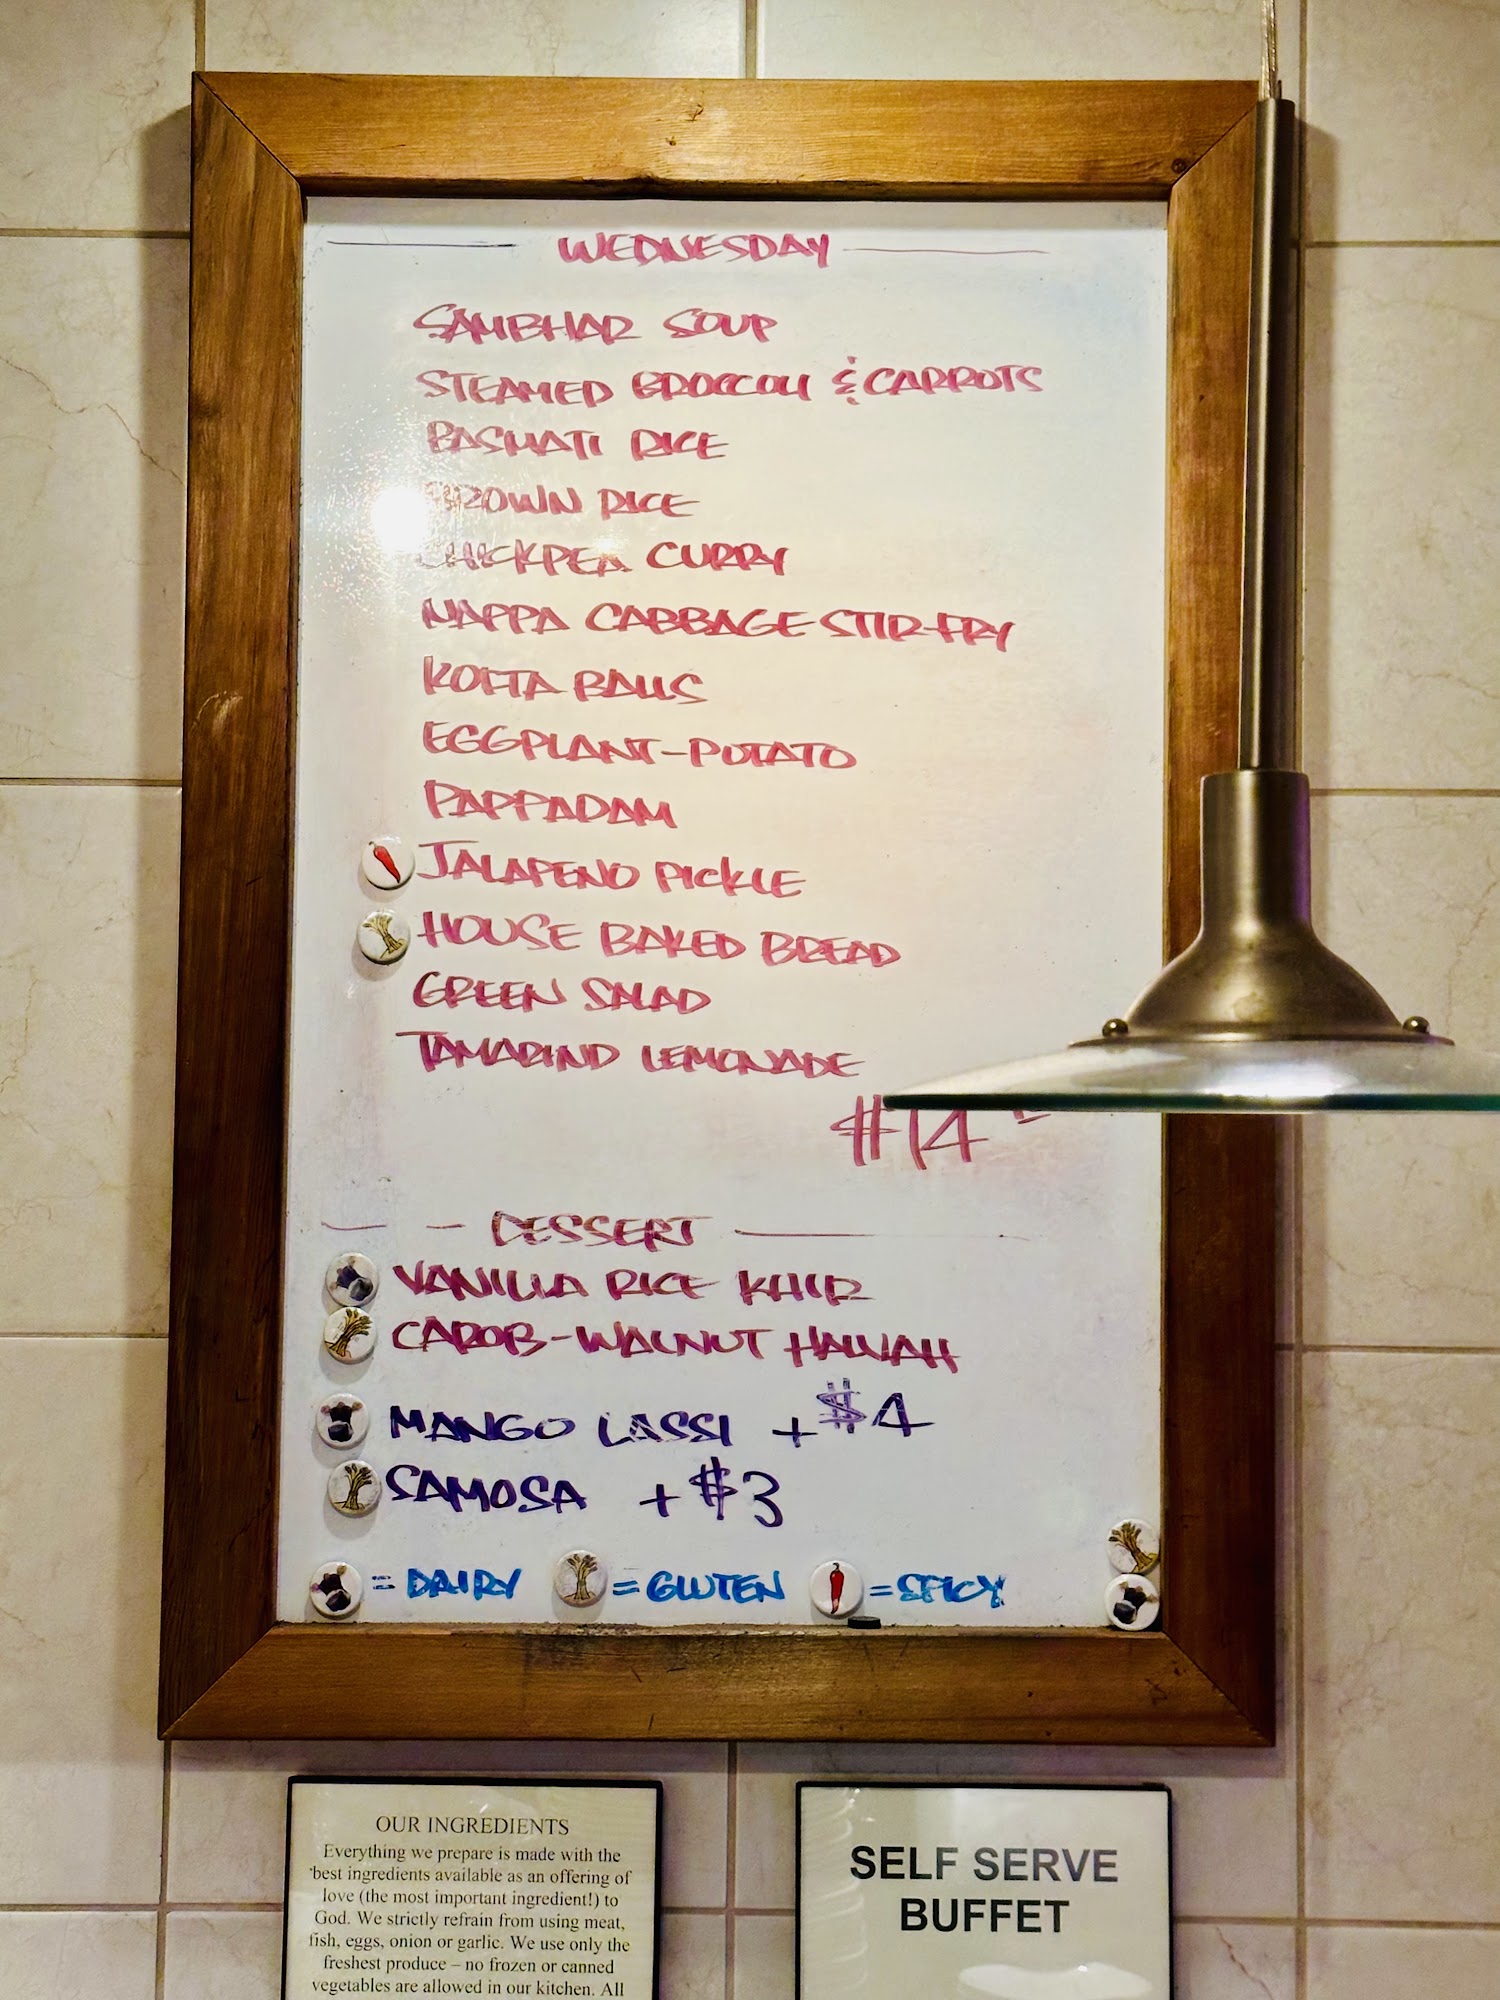 WEDNESDAY
SAMBHAR SOUP
STEAMED BROCCOLI & CARROTS
BASMATI RICE
BROWN RICE
CHICKPEA CURRY
NAPPA CABBAGE STIR-FRY
KOFTA BALLS
EGGPLANT-POTATO
PAPPADAM
JALAPENO PICKLE
HOUSE BAKED BREAD
GREEN SALAD
TAMARIND LEMONADE
$14
DESSERT
VANILLA RICE KHIR
CAROB-WALNUT HALVAH
MANGO LASSI +$4
SAMOSA +$3
= DAIRY = GLUTEN = SPICY
OUR INGREDIENTS
Everything we prepare is made with the
best ingredients available as an offering of
love (the most important ingredient!) to
God. We strictly refrain from using meat,
fish, eggs, onion or garlic. We use only the
freshest produce – no frozen or canned
vegetables are allowed in our kitchen. All
SELF SERVE
BUFFET